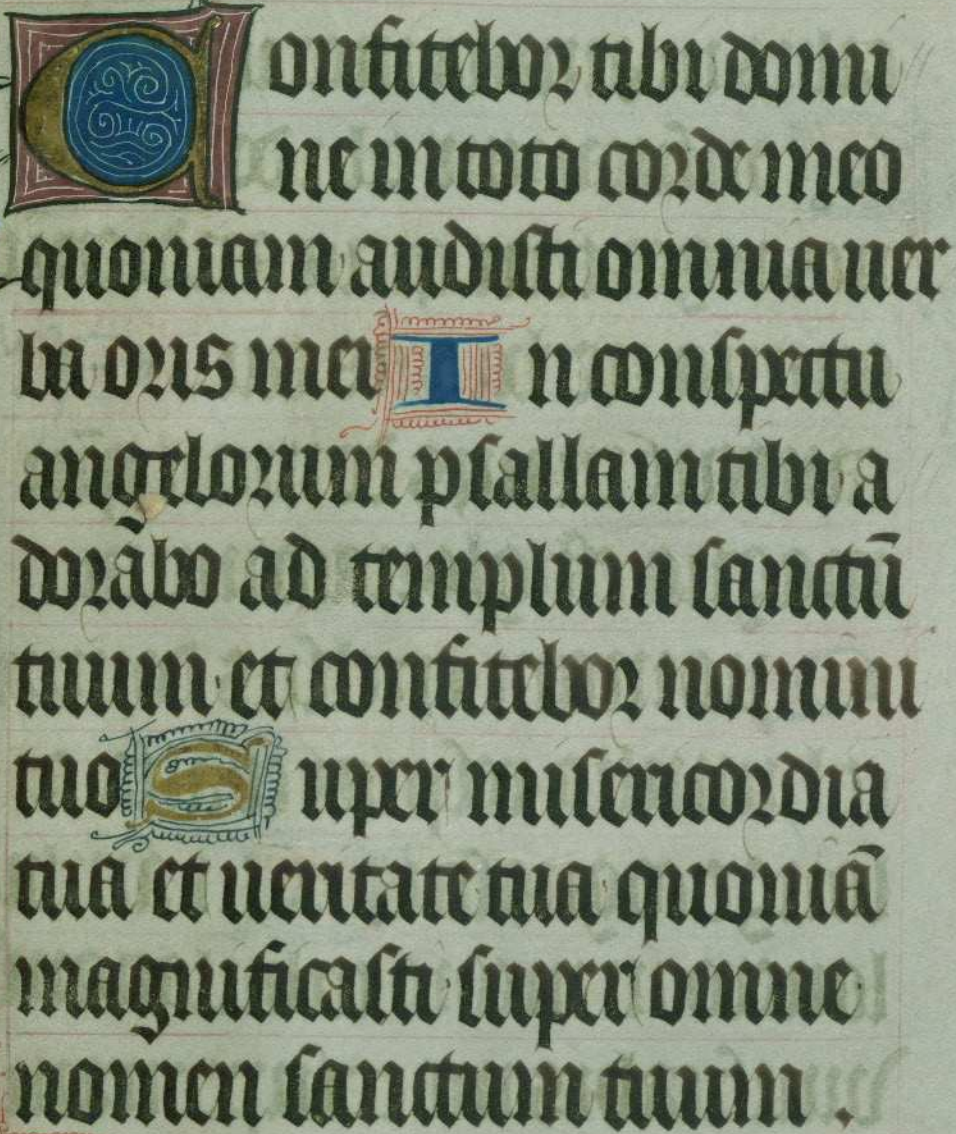 Confitebor tibi domi
ne in toto corde meo
quoniam audisti omnia uer
ba oris mei In conspectu
angelorum psallam tibi a
dorabo ad templum sanctū
tuum et confitebor nomini
tuo Super misericordia
tua et ueritate tua quoniā
magnificasti super omne
nomen sanctum tuum .